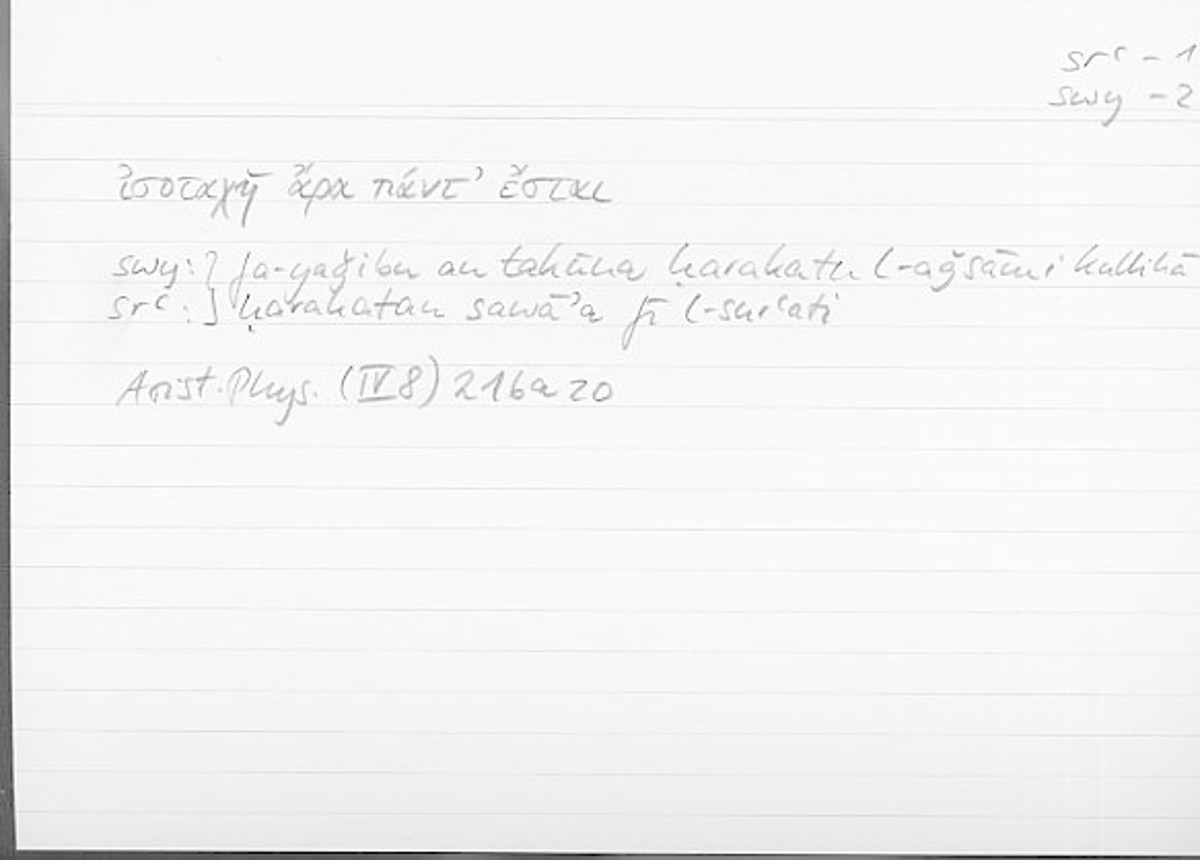 srʿ – 1
swy – 2
ἰσοταχῆ ἄρα πάντ’ ἔσται
swy: ] fa-yaǧibu an takūna ḥarakatu l-aǧsāmi kullihā
srʿ : ] ḥarakatan sawāʾa fī l-surʿati
Arist. Phys. (IV 8) 216a20